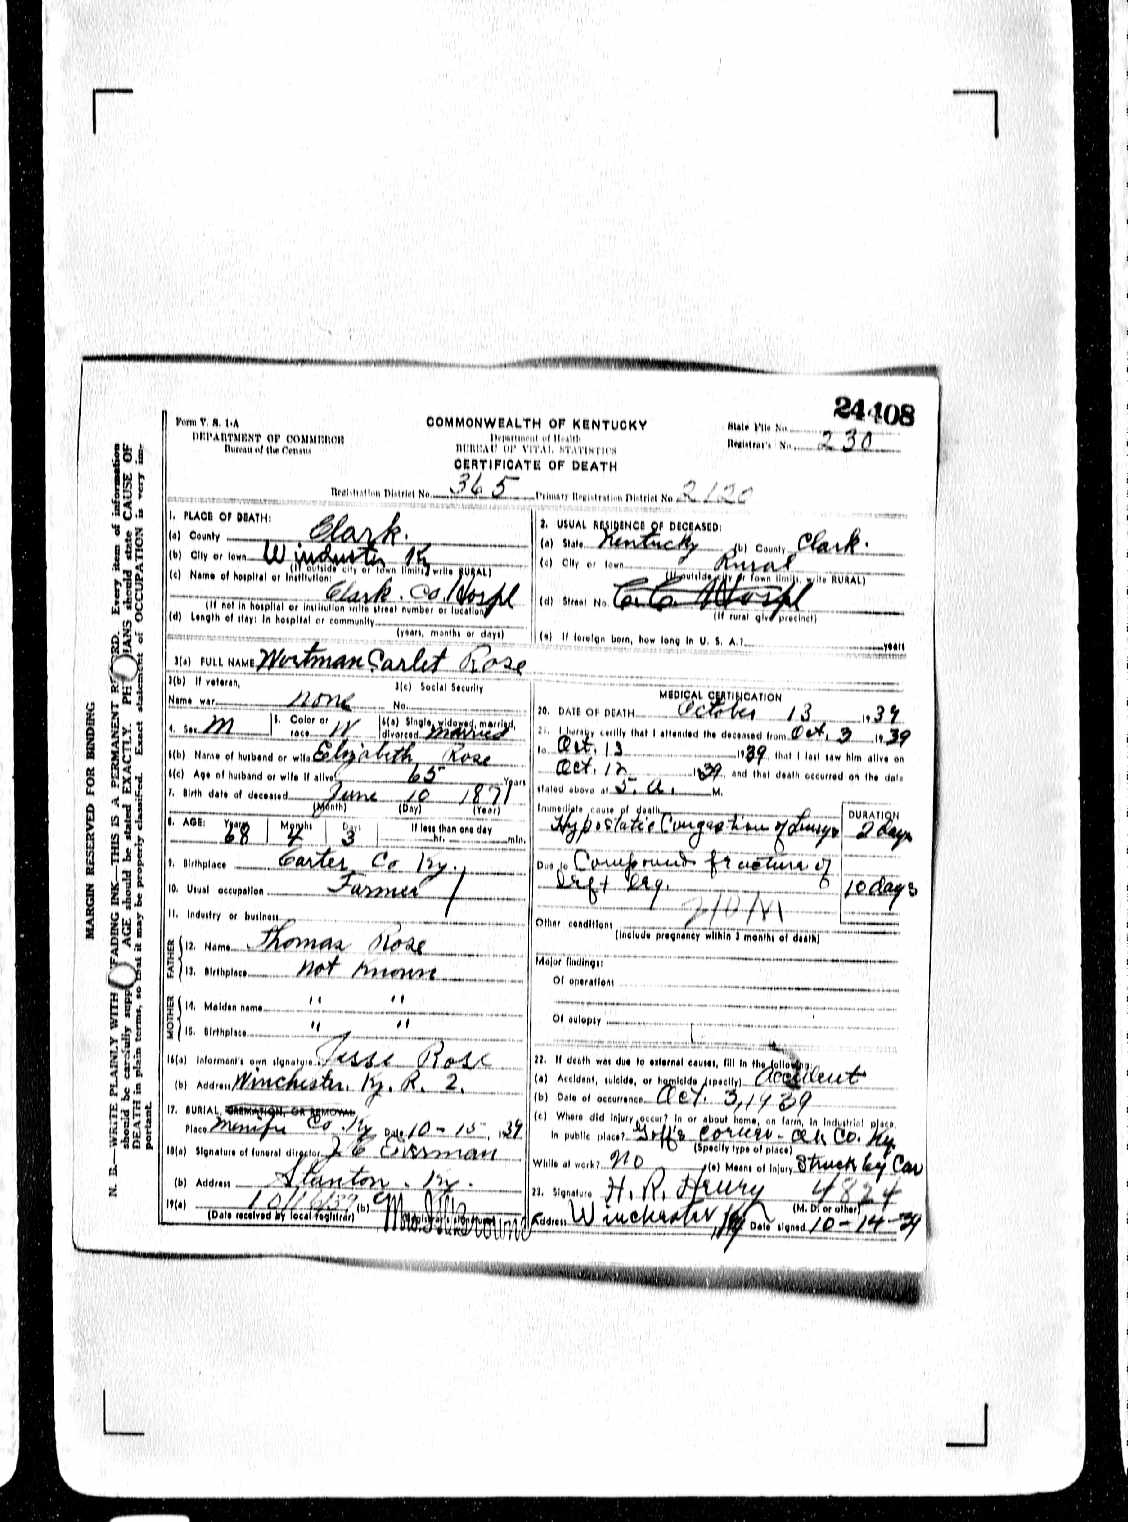 24408
Form V. S. 1-A
DEPARTMENT OF COMMERCE
Bureau of the Census
COMMONWEALTH OF KENTUCKY
Department of Health
BUREAU OF VITAL STATISTICS
CERTIFICATE OF DEATH
State File No.
Registrar's No. 230
Registration District No. 365 Primary Registration District No. 2120
1. PLACE OF DEATH:
(a) County Clark.
(b) City or town Winchester Ky
(If outside city or town limits, write RURAL)
(c) Name of hospital or institution:
Clark. Co. Hospl
(If not in hospital or institution write street number or location)
(d) Length of stay: In hospital or community
(years, months or days)
2. USUAL RESIDENCE OF DECEASED:
(a) State Kentucky (b) County Clark.
(c) City or town Rural
(If outside city or town limits, write RURAL)
(d) Street No. C. C. Hospl
(If rural give precinct)
(e) If foreign born, how long in U. S. A.? years
3(a) FULL NAME Wortman Sarlet Rose
3(b) If veteran, 3(c) Social Security
Name war none No.
4. Sex M 5. Color or race W 6(a) Single, widowed, married, divorced married
6(b) Name of husband or wife Elizabeth Rose
6(c) Age of husband or wife if alive 65 Years
7. Birth date of deceased June 10 1871
(Month) (Day) (Year)
8. AGE: Years 68 Months 4 Days 3 If less than one day hr. min.
9. Birthplace Carter Co Ky.
10. Usual occupation Farmer
11. Industry or business
FATHER
12. Name Thomas Rose
13. Birthplace not known
MOTHER
14. Maiden name " "
15. Birthplace " "
16(a) Informant's own signature Jesse Rose
(b) Address Winchester. Ky. R. 2.
17. BURIAL, CREMATION, OR REMOVAL
Place Menifee Co. Ky Date 10-15, 1939
18(a) Signature of funeral director J. C Everman
(b) Address Stanton. Ky.
19(a) 10/16/39 (b) Mrs.
(Date received by local registrar)
MEDICAL CERTIFICATION
20. DATE OF DEATH October 13 1939
21. I hereby certify that I attended the deceased from Oct. 3 1939
to Oct. 13 1939 that I last saw him alive on
Oct. 12 1939 and that death occurred on the date
stated above at 5. A. M.
Immediate cause of death DURATION
Hypostatic Congestion of Lungs 2 days
Due to Compound fracture of
Left Leg. 10 days
Other conditions
(Include pregnancy within 3 months of death)
Major findings:
Of operations
Of autopsy
22. If death was due to external causes, fill in the following:
(a) Accident, suicide, or homicide (specify) Accident
(b) Date of occurrence Oct. 3, 1939
(c) Where did injury occur? In or about home, on farm, in industrial place,
in public place? Goff's corner - Clk Co. Ky
(Specify type of place)
While at work? No (e) Means of injury Struck by Car
23. Signature H. R. Henry 4824
(M. D. or other)
Address Winchester, Ky Date signed 10-14-39
MARGIN RESERVED FOR BINDING
N. B.—WRITE PLAINLY WITH FADING INK—THIS IS A PERMANENT RECORD. Every item of information
should be carefully supp AGE should be stated EXACTLY. PH ANS should state CAUSE OF
DEATH in plain terms, so that it may be properly classified. Exact statement of OCCUPATION is very im-
portant.